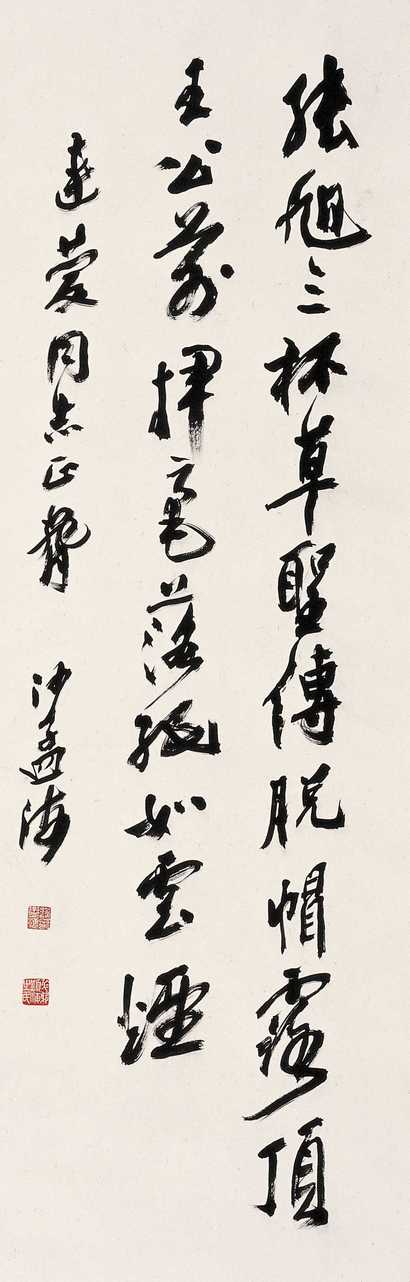 張旭三杯草聖傳脱帽露頂
王公前揮毫落紙如雲煙
達蓉同志正臂
沙孟海